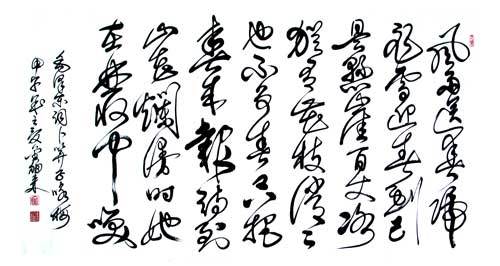 風雨送春归
飞雪迎春到已
是悬崖百丈冰
犹有花枝俏々
也不争春只把
春来報待到
山花爛漫时她
在丛中笑
毛泽东词卜算子咏梅
甲午